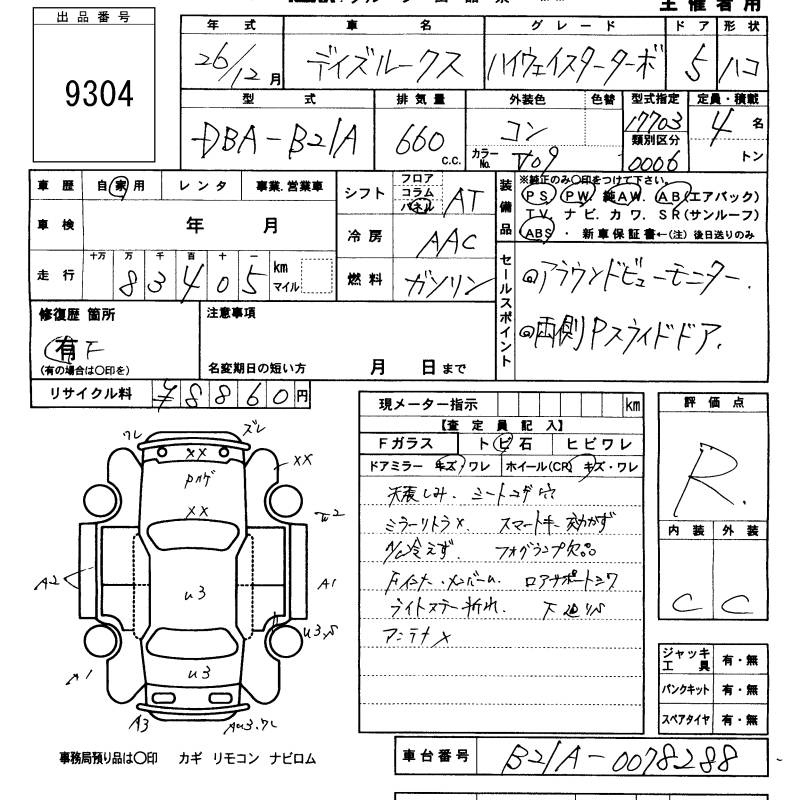 主催者用
出品番号
9304
年式 車名 グレード ドア 形状
26/12月 デイズルークス ハイウェイスターターボ 5 ハコ
型式 排気量 外装色 色替 型式指定 定員・積載
DBA-B21A 660 c.c. コン 17703 4名
カラーNo. V09 類別区分 0006 トン
車歴 自家用 レンタ 事業.営業車
シフト フロア コラム パネル AT
車検 年 月
冷房 AAC
走行 十万 万 千 百 十 一
83405 km マイル
燃料 ガソリン
装備品 ※純正のみ〇印をつけて下さい。
PS. PW. 純AW. AB(エアバック)
TV. ナビ. カワ. SR(サンルーフ)
ABS ・ 新車保証書←(注)後日送りのみ
セールスポイント
◎アラウンドビューモニター.
◎両側Pスライドドア.
修復歴 箇所
有 F
(有の場合は〇印を)
注意事項
名変期日の短い方 月 日まで
リサイクル料 ¥8860円
現メーター指示 km
【査定員記入】
Fガラス トビ石 ヒビワレ
ドアミラー キズ/ワレ ホイール(CR) キズ・ワレ
天張しみ. シートコゲ穴
ミラーリトラ×. スマートキー効かず
A/C冷えず. フォグランプ欠品
Fインナー.メンバーム. ロアサポートシワ
ライトステー折れ. 下廻りS
アンテナ×
評価点
R.
内装 外装
C C
ジャッキ工具 有・無
パンクキット 有・無
スペアタイヤ 有・無
ワレ ズレ
××
××
Pハゲ
××
A2
U3
A1
U3.S
A1
U3
A3
AU3.ワレ
事務局預り品は〇印 カギ リモコン ナビロム
車台番号 B21A-0078288